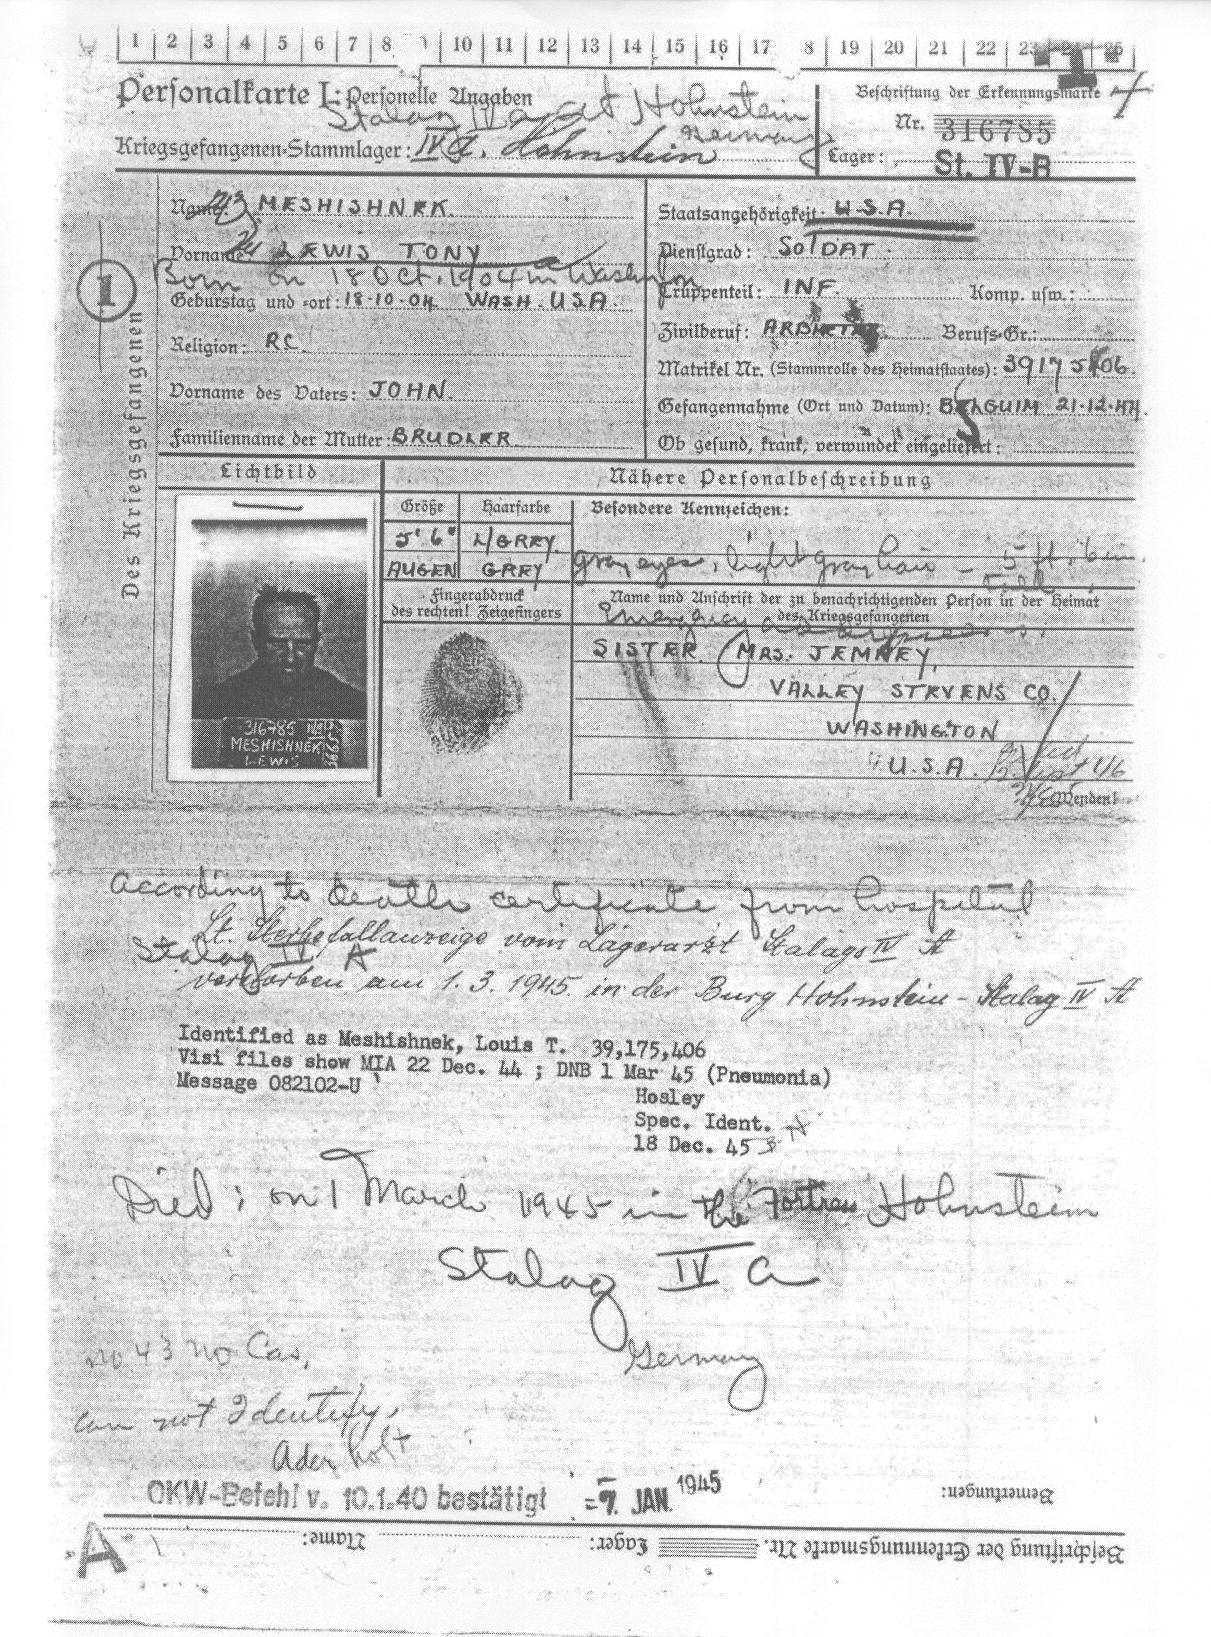 1 2 3 4 5 6 7 8 10 11 12 13 14 15 16 17 8 19 20 21 22 23 25
Personalkarte I: Personelle Angaben
Beschriftung der Erkennungsmarke
Stalag IV a at Hohnstein
Germany
Nr. 316785
Kriegsgefangenen-Stammlager: IV A. Hohnstein
Lager: St. IV-B
Des Kriegsgefangenen
1
Name: MESHISHNEK.
Vorname: LEWIS TONY
Born on 18 Oct. 1904 in Washington
Geburtstag und -ort: 18-10-04 WASH. U.S.A.
Religion: RC.
Vorname des Vaters: JOHN.
Familienname der Mutter: BRUDLER
Staatsangehörigkeit: U.S.A.
Dienstgrad: SOLDAT
Truppenteil: INF. Komp. usw.:
Zivilberuf: Berufs-Gr.:
Matrikel Nr. (Stammrolle des Heimatstaates): 39175406.
Gefangennahme (Ort und Datum): BELGUIM 21-12-44.
Ob gesund, krank, verwundet eingeliefert:
Lichtbild
Nähere Personalbeschreibung
Größe Haarfarbe Besondere Kennzeichen:
5' 6" L/GREY.
AUGEN GREY
gray eyes, light gray hair - 5 ft. 6 in.
Tall
Fingerabdruck
des rechten! Zeigefingers
Name und Anschrift der zu benachrichtigenden Person in der Heimat
des Kriegsgefangenen
Emergency addressee
SISTER. MRS. JEMNEY,
VALLEY STEVENS CO.
WASHINGTON
U.S.A.
Wenden!
316785
MESHISHNEK
LEWIS
According to death certificate from hospital
Lt. Sterbefallanzeige vom Lagerarzt Stalags IV A
Stalag IV A
verstorben am 1.3.1945 in der Burg Hohnstein - Stalag IV A
Identified as Meshishnek, Louis T. 39,175,406
Visi files show MIA 22 Dec. 44 ; DNB 1 Mar 45 (Pneumonia)
Message 082102-U
Hosley
Spec. Ident.
18 Dec. 45
Died: on 1 March 1945 in the Fortress Hohnstein
Stalag IV a
Germany
no 43 no Cas,
can not Identify,
Aderholt
OKW-Befehl v. 10.1.40 bestätigt = 7. JAN. 1945
Bemerkungen:
A
Beschriftung der Erkennungsmarke Nr. Lager: Name: